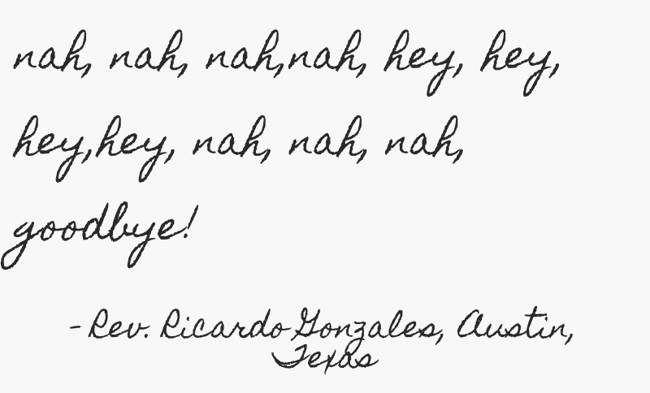 nah, nah, nah,nah, hey, hey,
hey,hey, nah, nah, nah,
goodbye!
- Rev. Ricardo Gonzales, Austin,
Texas